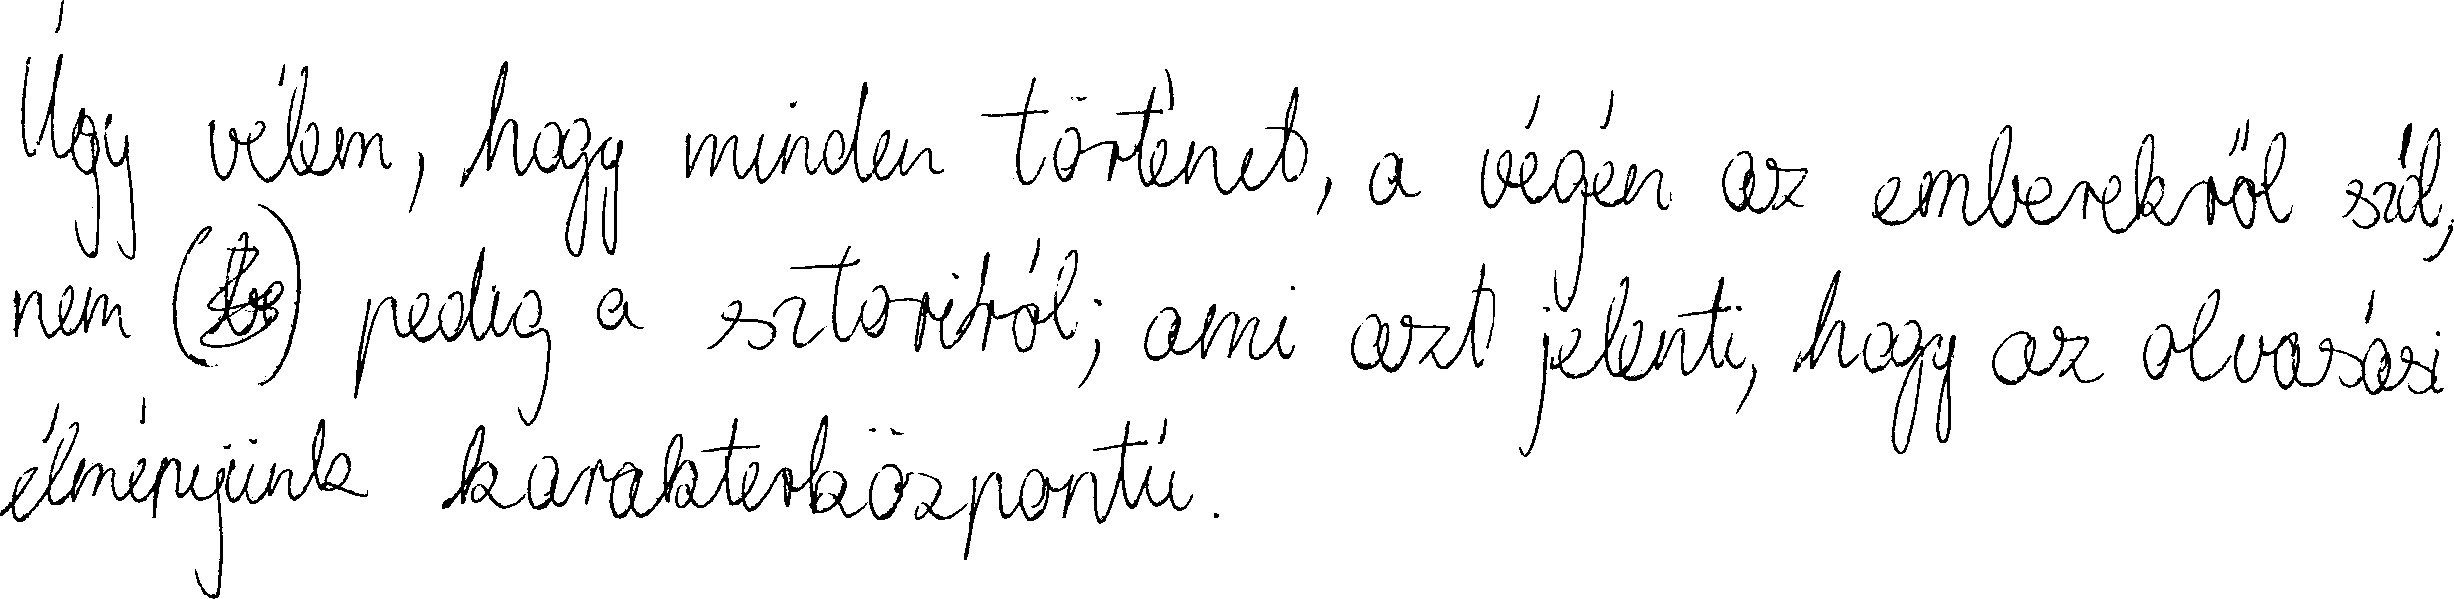 Úgy vélem, hogy minden történet, a végén az emberekről szól,
nem pedig a sztoriról; ami azt jelenti, hogy az olvasási
élményünk karakterközpontú.